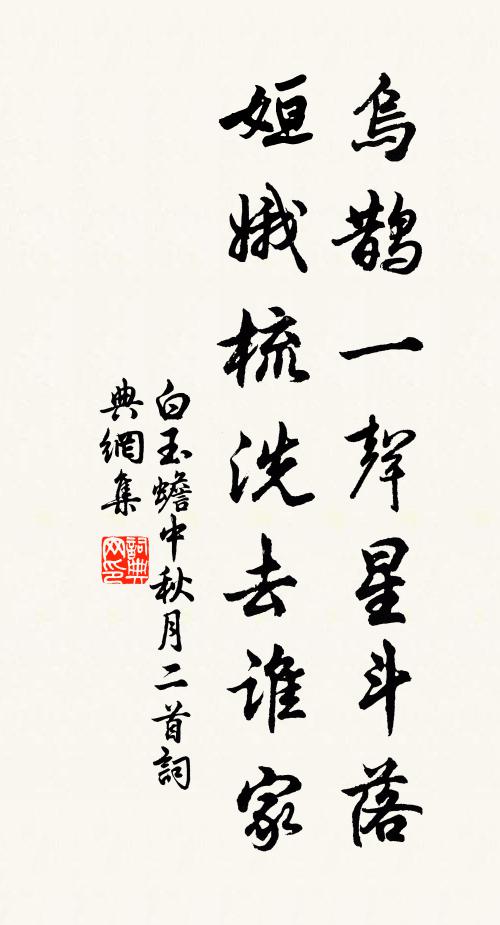 烏鵲一聲星斗落
姮娥梳洗去誰家
白玉蟾中秋月二首詞
典網集
詞典
网印